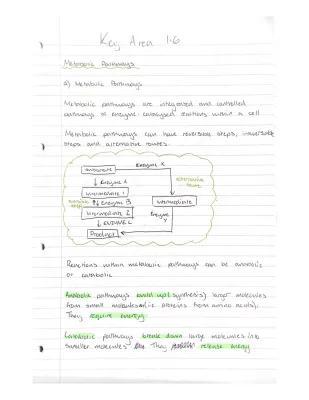 Key Area 1.6
Metabolic Pathways
a) Metabolic Pathways
Metabolic pathways are integrated and controlled
pathways of enzyme-catalysed reactions within a cell
Metabolic pathways can have reversible steps, irreversible
steps and alternative routes.
Enzyme X
Substrate
alternative
route
↓ Enzyme A
Intermediate 1
reversible
step
⇅ Enzyme B
Intermediate
Intermediate 2
↓ Enzyme C
Enzyme
Y
Product
Reactions within metabolic pathways can be anabolic
or catabolic
Anabolic pathways build up (synthesis) larger molecules
from small molecules (ie proteins from amino acids).
They require energy
Catabolic pathways break down large molecules into
smaller molecules. They release energy